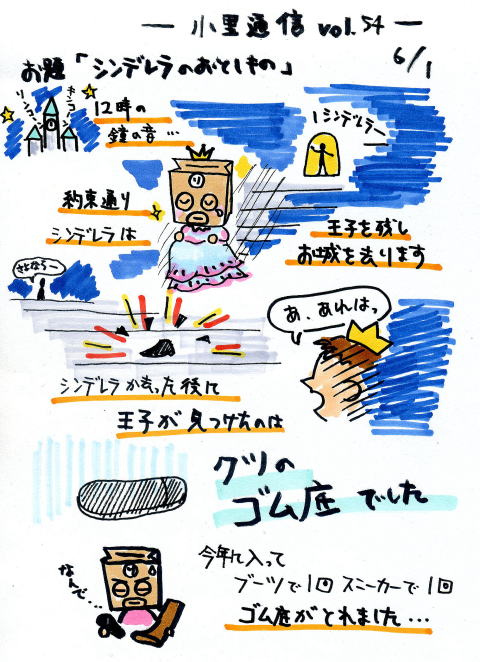 ― 小里通信 vol.54 ―
6/1
お題「シンデレラのおとしもの」
キンコーン
リンゴーン
12時の
鐘の音…
シンデレラー
約束通り
シンデレラは
王子を残し
お城を去ります
さよならー
あ、あれはっ
シンデレラが去った後に
王子が見つけたのは
クツの
ゴム底でした
なんで…
今年に入って
ブーツで1回 スニーカーで1回
ゴム底がとれました…